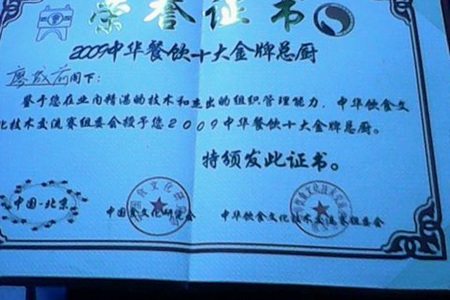 荣誉证书
2009中华餐饮十大金牌总厨
阁下:
鉴于您在业内精湛的技术和杰出的组织管理能力,中华饮食文
化技术交流赛组委会授予您2009中华餐饮十大金牌总厨。
特颁发此证书。
中国·北京
中国食文化研究会
中华饮食文化技术交流赛组委会